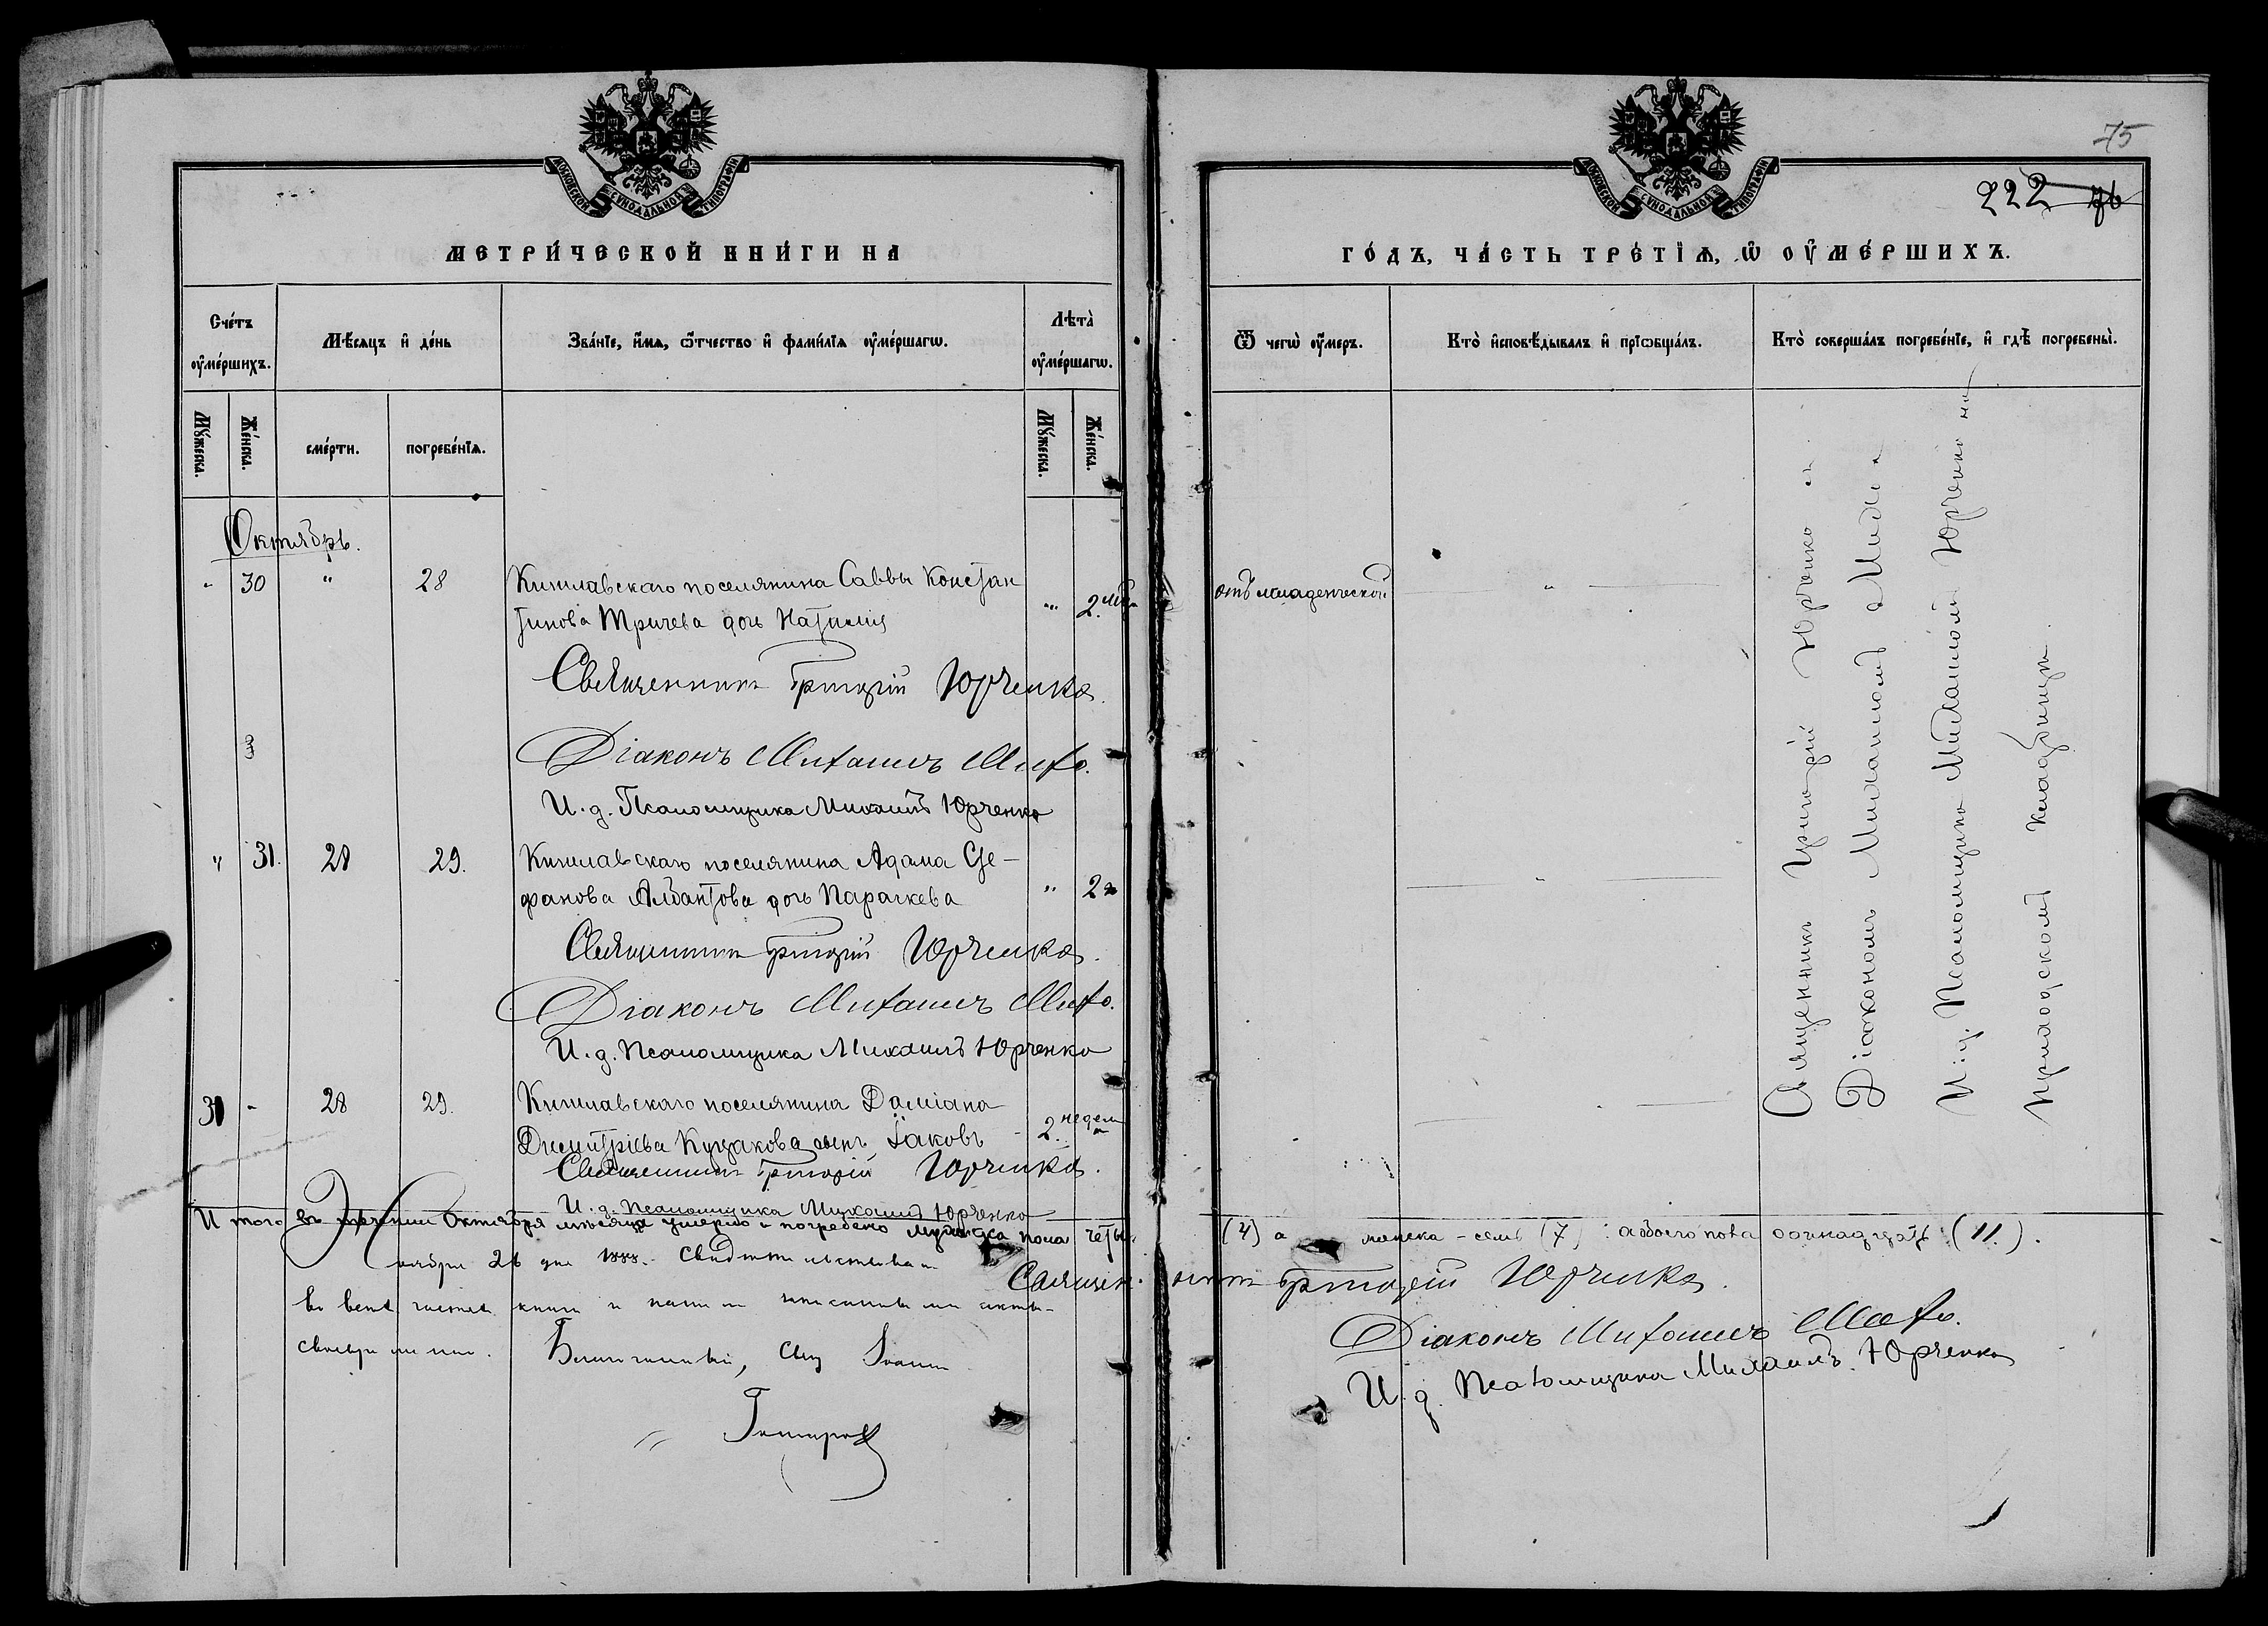 МОСКОВСКОЙ СУНОДАЛЬНОЙ ТИПОГРАФІИ
МЕТРИ́ЧЕСКОЙ КНИ́ГИ НА
Сче́тъ ᲂу҆ме́ршихъ.
Мѣ́сяцъ и҆ де́нь
Зва́нїе, и҆́мѧ, ѻ҆́тчество и҆ фами́лїѧ ᲂу҆ме́ршагѡ.
Лѣта̀ ᲂу҆ме́ршагѡ.
Мꙋ́жеска.
Же́нска.
сме́рти.
погребе́нїѧ.
Мꙋ́жеска.
Же́нска.
Октябрь.
" 30 " 28 Кишлавскаго поселянина Саввы Констан
тинова Тричева дочь Наталия " 2.
Священникъ Григорій Юрченко.
Діаконъ Михаилъ
И. д. Псаломщика Михаилъ Юрченко
" 31. 28 29. Кишлавскаго поселянина Адама Сте-
фанова Алвантова дочь Параскева " 2
Священникъ Григорій Юрченко.
Діаконъ Михаилъ
И. д. Псаломщика Михаилъ Юрченко
- 28 29. Кишлавскаго поселянина Даміана
Димитріева Кузакова сынъ Іаковъ 2. недели
Священникъ Григорій Юрченко.
И. д. Псаломщика Михаилъ Юрченко
Итого въ течении Октября мѣсяца умерло и погребено мужеска пола четы-
ноября 26 дня
во всей книги и
Іоаннъ
75
222 76
МОСКОВСКОЙ СУНОДАЛЬНОЙ ТИПОГРАФІИ
ГО́ДЪ, ЧА́СТЬ ТРЕ́ТЇѦ, Ѡ҆ ОУ҆МЕ́РШИХЪ.
Ѿ чегѡ̀ ᲂу҆́меръ.
Кто̀ и҆сповѣ́дывалъ и҆ прїѡбща́лъ.
Кто̀ соверша́лъ погребе́нїе, и҆ гдѣ̀ погребены̀.
отъ младенческой "
Священникъ Григорій Юрченко съ
Діакономъ Михаиломъ
И. д. Псаломщика Михаиломъ Юрченко на
приходскомъ кладбищѣ.
(4) а женска - семь (7) : а обоего пола одинадцать (11).
Священникъ Григорій Юрченко.
Діаконъ Михаилъ
И. д. Псаломщика Михаилъ Юрченко